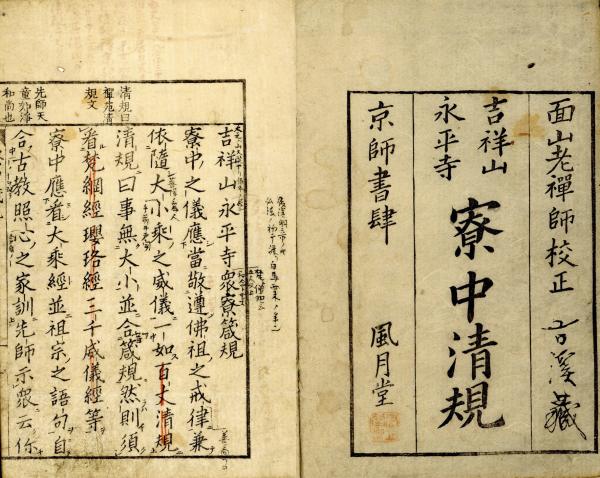 面山老禪師校正
吉祥山
永平寺
寮中清規
京師書肆
風月堂
吉祥山永平寺衆寮箴規
寮中之儀應當敬遵佛祖之戒律兼
依隨大小乘之威儀一如百丈清規
清規曰事無大小並合箴規然則須
看梵網經瓔珞經三千威儀經等
寮中應看大乘經並祖宗之語句自
合古教照心之家訓先師示衆云你
清規曰
禪苑清
規文
先師天
童如淨
和尚也